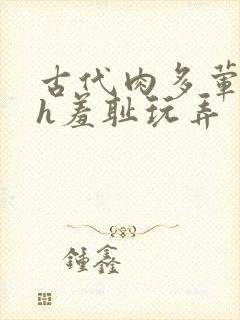 古代肉多荤
h羞耻玩弄
锺鑫